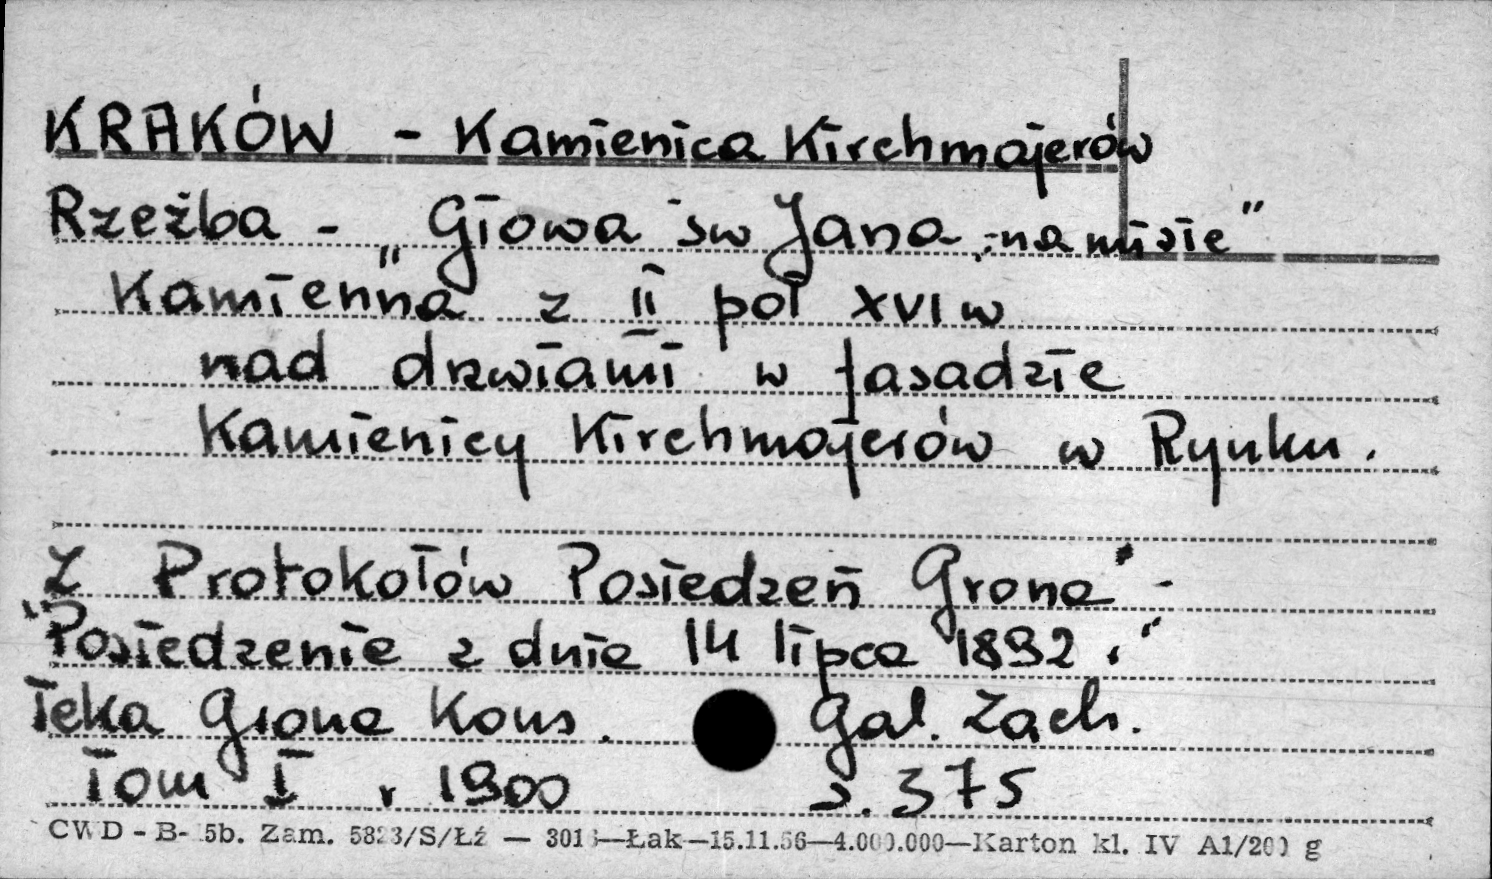 KRAKÓW - Kamienica Kirchmajerów
Rzeźba - „Głowa św Jana na misie"
Kamienna z II poł XVI w
nad drzwiami w fasadzie
Kamienicy Kirchmajerów w Rynku.
Z Protokołów Posiedzeń Grona" -
"Posiedzenie z dnia 14 lipca 1892."
Teka Grona Kons. Gal. Zach.
Tom I r 1900 s. 375
CWD - B- 5b. Zam. 5823/S/Łź — 301 —Łak—15.11.56—4.000.000—Karton kl. IV A1/200 g